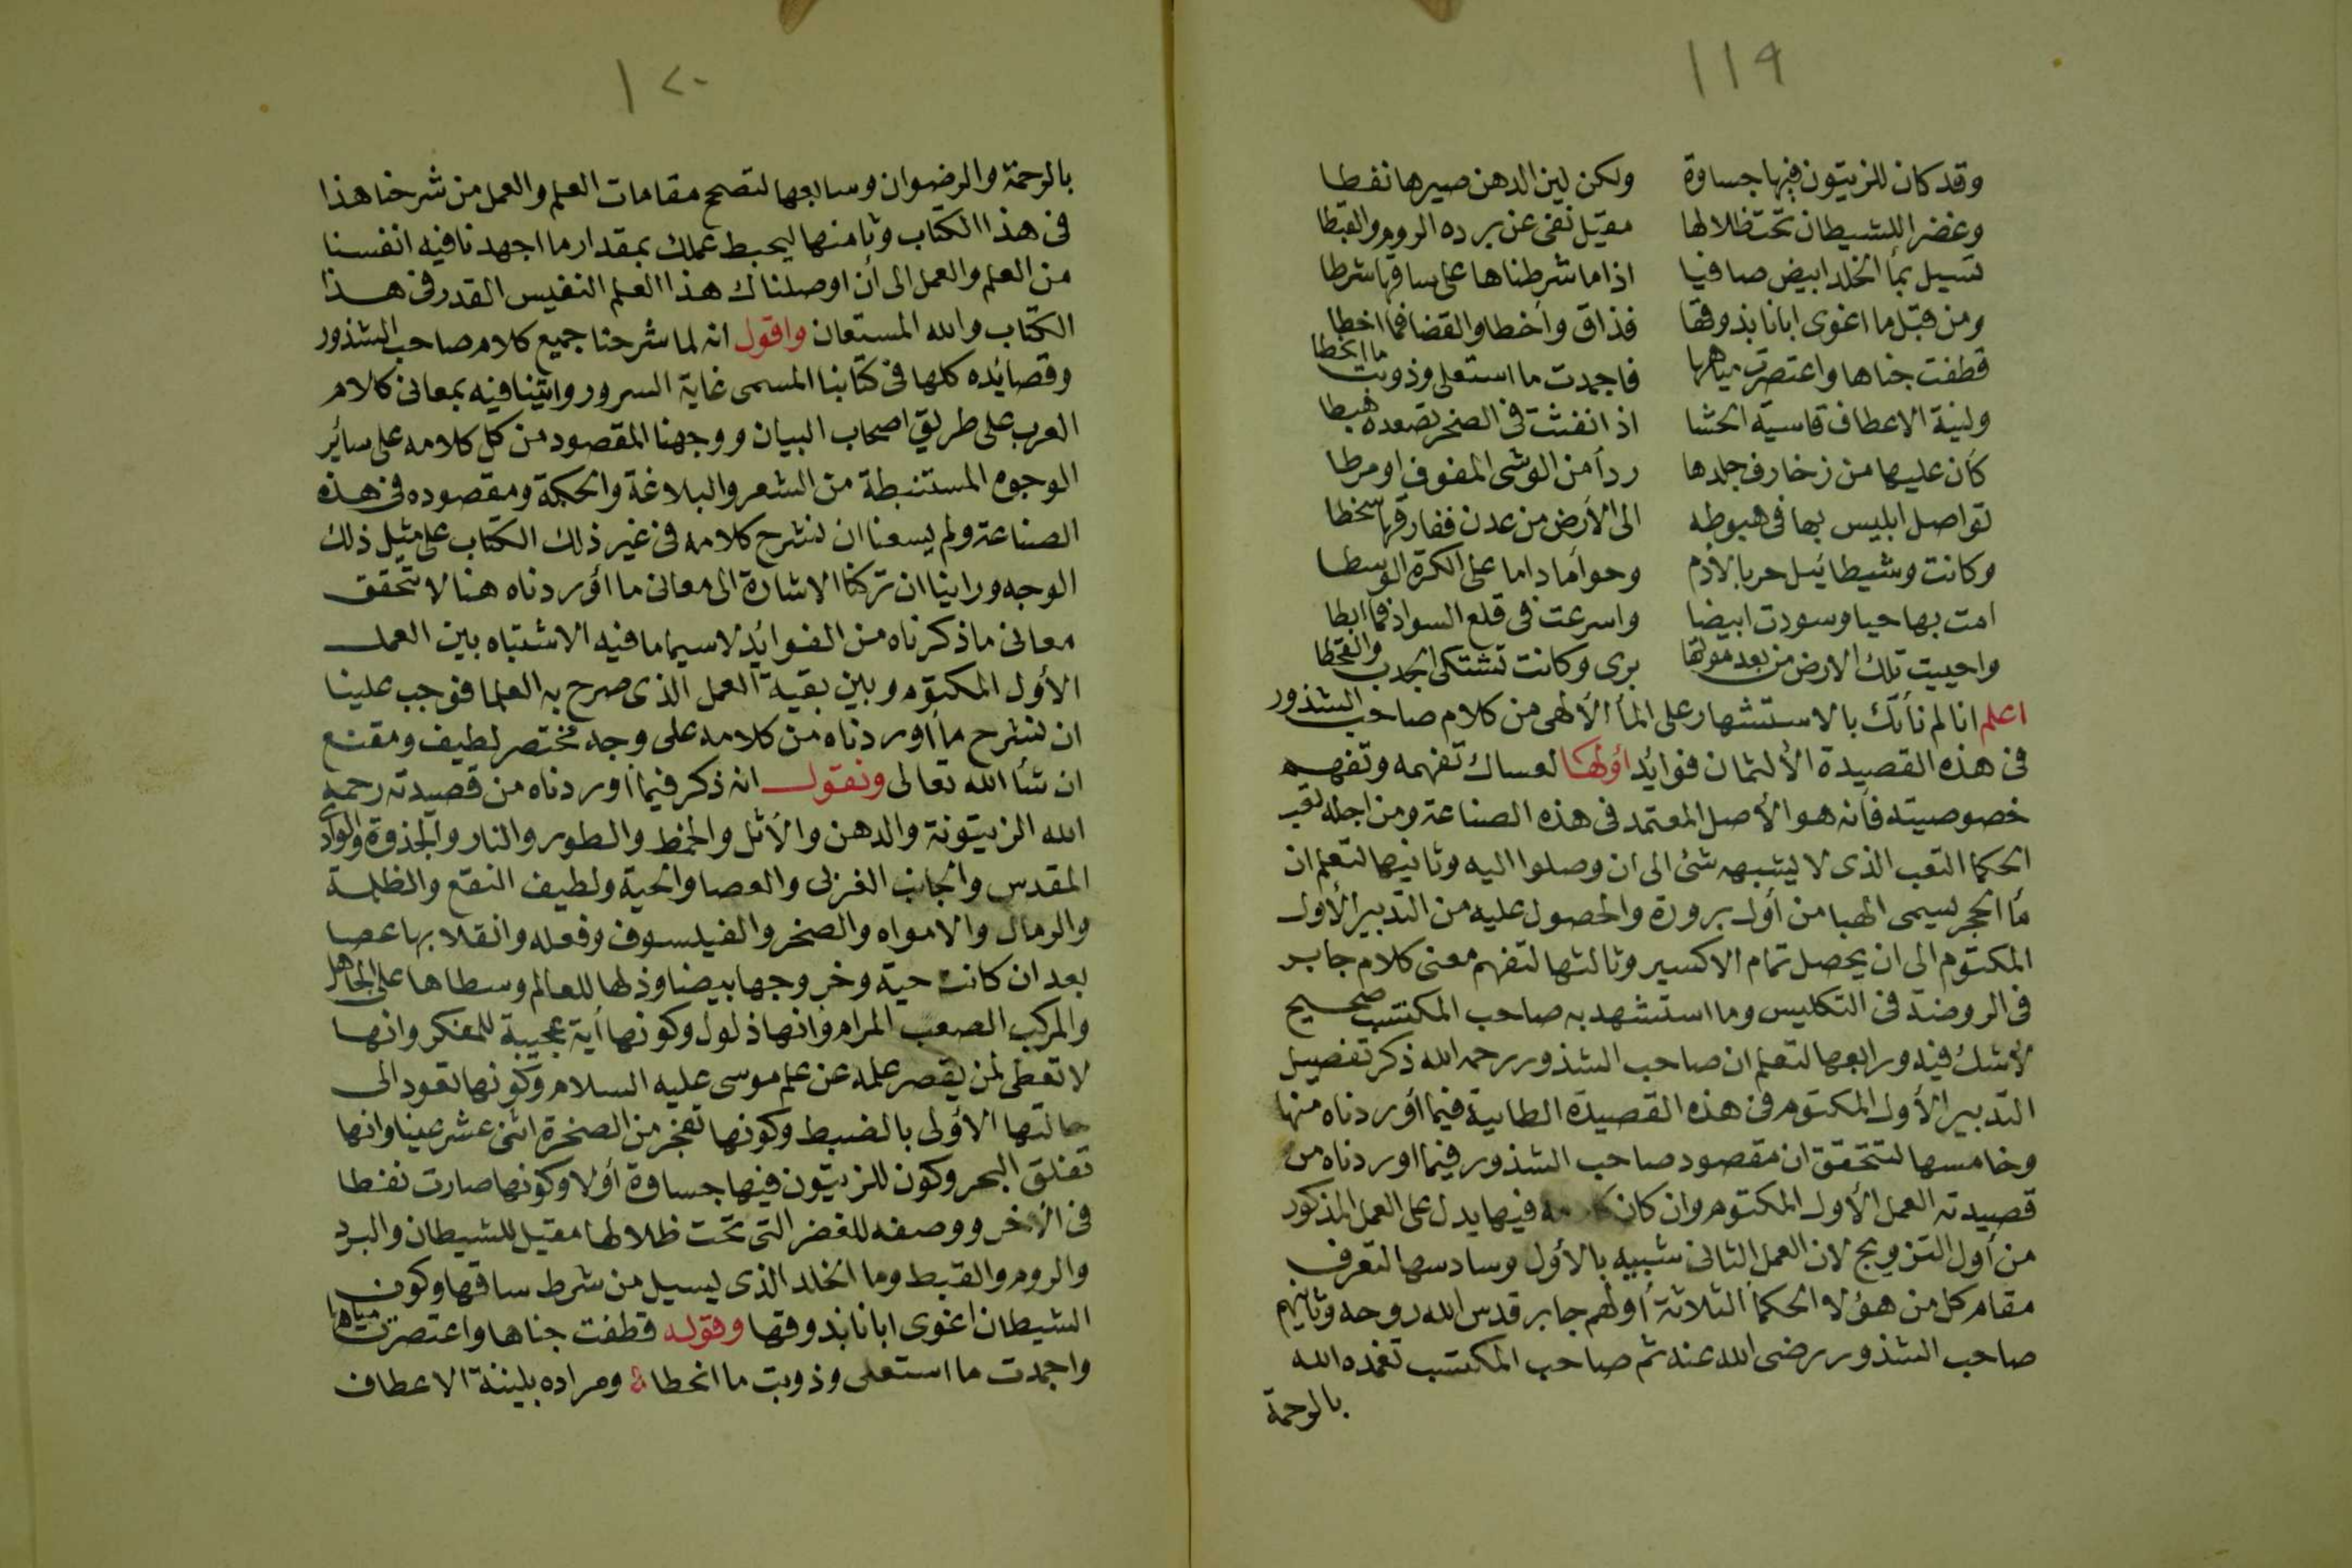 ١١٩
وقد كان للزيتون فيها جساوة ولكن لين الدهن صيرها نفطا
وغضر اللشيطان تحت ظلالها مقيل نفى عن برده الروم والقبطا
تسيل بمأ الخلد ابيض صافيا اذا ما شرطناها على ساقها شرطا
ومن قبل ما اغوى ابانا بذوقها فذاق وأخطا والقضا فما اخطا
قطفت جناها واعتصرت مياهها فاجمدت ما استعلى وذوبت ما انحطا
ولينة الاعطاف قاسية الحشا اذا نفثت فى الصخر تصعده هبطا
كأن عليها من زخارف جلدها ردأ من الوشى المفوف او مرطا
تواصل ابليس بها فى هبوطه الى الأرض من عدن ففارقها سخطا
وكانت وشيطائيل حربا لأدم وحوأ ما داما على الكرة الوسطا
امت بها حيا وسودت ابيضا واسرعت فى قلع السواد فما ابطا
واحييت تلك الارض من بعد موتها برى وكانت تشتكى الجدب والقحطا
اعلم انا لم نأتك بالاستشهار على المأ الألهى من كلام صاحب الشذور
فى هذه القصيدة الألثمان فوائد أولها لعساك تفهمه وتفهم
خصوصيته فأنه هو الأصل المعتمد فى هذه الصناعة ومن اجله تعب
الحكما التعب الذى لا يشبهه شئ الى ان وصلوا اليه وثانيها لتعلم ان
مأ الحجر يسمى الهبا من أول بروزة والحصول عليه من التدبير الأول
المكتوم الى ان يحصل تمام الاكسير وثالثها لتفهم معنى كلام جابر
فى الروضة فى التكليس وما استشهد به صاحب المكتسب صحيح
لأشك فيه ورابعها لتعلم ان صاحب الشذور رحمه الله ذكر تفصيل
التدبير الأول المكتوم فى هذه القصيدة الطايية فيما أوردناه منها
وخامسها لتتحقق ان مقصود صاحب الشذور فيما اوردناه من
قصيدته العمل الأول المكتوم وان كان كلامه فيها يدل على العمل المذكور
من أول التزويج لان العمل الثانى شبيه بالأول وسادسها لتعرف
مقام كل من هؤلا الحكمأ الثلاثة أولهم جابر قدس الله روحه وثانيهم
صاحب الشذور رضى الله عنه ثم صاحب المكتسب تغمده الله
بالرحمة
١٢٠
بالرحمة والرضوان وسابعها لتصح مقامات العلم والعمل من شرحنا هذا
فى هذا الكتاب وثامنها ليحبط عملك بمقدار ما اجهدنا فيه انفسنا
من العلم والعمل الى أن اوصلناك هذا العلم النفيس القدر فى هذا
الكتاب والله المستعان واقول انه لما شرحنا جميع كلام صاحب الشذور
وقصائده كلها فى كتابنا المسمى غاية السرور واتينا فيه بمعانى كلام
العرب على طريق اصحاب البيان ووجهنا المقصود من كل كلامه على سائر
الوجوه المستنبطة من الشعر والبلاغة والحكمة ومقصوده فى هذه
الصناعة ولم يسعنا ان نشرح كلامه فى غير ذلك الكتاب على مثل ذلك
الوجه وراينا ان تركنا الاشارة الى معانى ما أوردناه هنا لا تتحقق
معانى ما ذكرناه من الفوائد لاسيما ما فيه الاشتباه بين العمل
الأول المكتوم وبين بقية العمل الذى صرح به العلما فوجب علينا
ان نشرح ما أوردناه من كلامه على وجه مختصر لطيف ومقنع
ان شأ الله تعالى ونقول انه ذكر فيما أوردناه من قصيدته رحمه
الله الزيتونة والدهن والأثل والخمط والطور والنار والجذوة والوادى
المقدس والجانب الغربى والعصا والحية ولطيف النقع والظلمة
والرمال والامواه والصخر والفيلسوف وفعله وانقلابها عصا
بعد ان كانت حية وخروجها بيضا وذلها للعالم وسطاها على الجاهل
والمركب الصعب المرام وانها ذلول وكونها أية عجيبة للمفكر وانها
لا تعطى لمن يقصر علمه عن علم موسى عليه السلام وكونها تعود الى
حالتها الأولى بالضبط وكونها تفجر من الصخرة اثنى عشر عينا وانها
تفلق البحر وكون للزيتون فيها جساوة أولا وكونها صارت نفطا
فى الأخر ووصفه للغضر التى تحت ظلالها مقيل للشيطان والبرد
والروم والقبط وما الخلد الذى يسيل من شرط ساقها وكون
الشيطان اغوى ابانا بذوقها وقوله قطفت جناها واعتصرت مياهها
واجمدت ما استعلى وذوبت ما انحطا ومراده بلينة الاعطاف